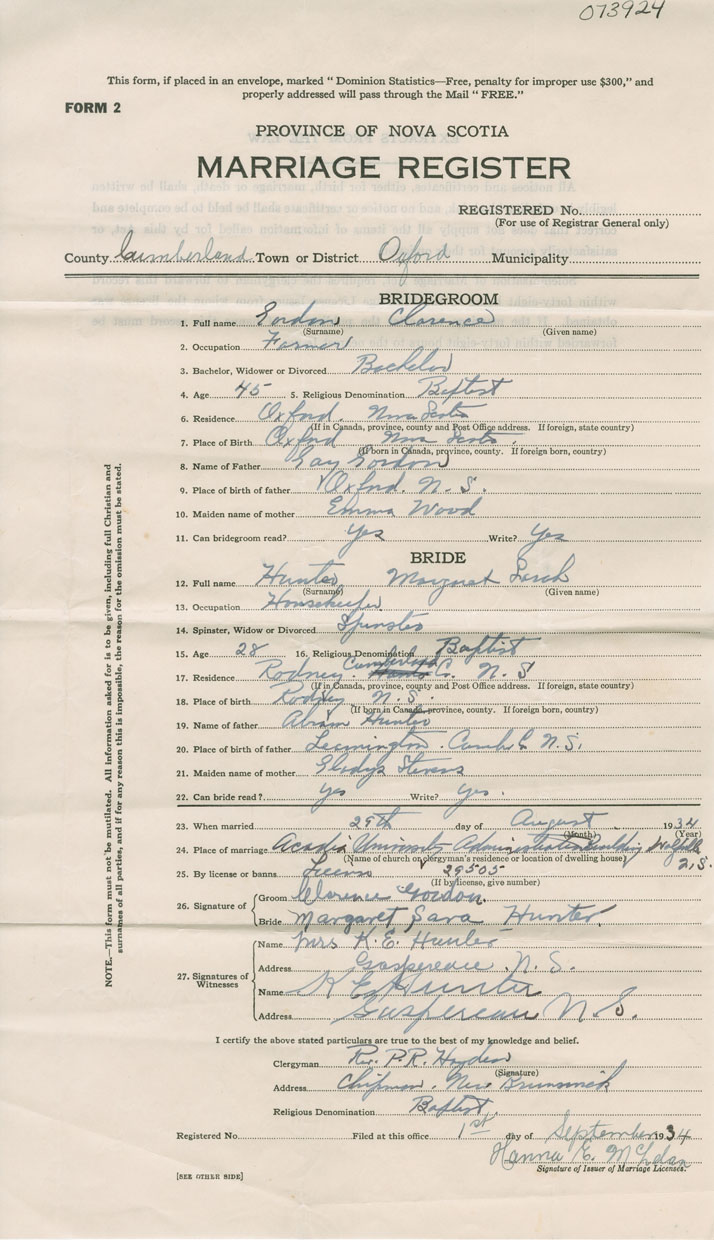 073924
This form, if placed in an envelope, marked "Dominion Statistics—Free, penalty for improper use $300," and
properly addressed will pass through the Mail "FREE."
FORM 2
PROVINCE OF NOVA SCOTIA
MARRIAGE REGISTER
REGISTERED No.
(For use of Registrar General only)
County Cumberland Town or District Oxford Municipality
BRIDEGROOM
1. Full name Gordon Clarence
(Surname) (Given name)
2. Occupation Farmer
3. Bachelor, Widower or Divorced Bachelor
4. Age 45 5. Religious Denomination Baptist
6. Residence Oxford. Nova Scotia
(If in Canada, province, county and Post Office address. If foreign, state country)
7. Place of Birth Oxford Nova Scotia.
(If born in Canada, province, county. If foreign born, country)
8. Name of Father Gay Gordon
9. Place of birth of father Oxford. N.S.
10. Maiden name of mother Emma Wood
11. Can bridegroom read? Yes Write? Yes
BRIDE
12. Full name Hunter Margaret
(Surname) (Given name)
13. Occupation Housekeeper
14. Spinster, Widow or Divorced Spinster
15. Age 28 16. Religious Denomination Baptist
17. Residence Rodney. Cumberland Co. N.S
(If in Canada, province, county and Post Office address. If foreign, state country)
18. Place of birth Rodney N.S.
(If born in Canada, province, county. If foreign born, country)
19. Name of father Abram Hunter
20. Place of birth of father Leamington. Cumb Co N.S.
21. Maiden name of mother Gladys Stevens
22. Can bride read? Yes Write? Yes.
23. When married 29th day of August 1934
(Month) (Year)
24. Place of marriage Acadia University Administration Building Wolfville
N.S.
(Name of church or clergyman's residence or location of dwelling house)
25. By license or banns License 29505
(If by license, give number)
26. Signature of
Groom Clarence Gordon.
Bride Margaret Sara Hunter.
27. Signatures of Witnesses
Name Mrs K. E. Hunter
Address Gaspereau, N.S.
Name K E Hunter
Address Gaspereau N.S.
I certify the above stated particulars are true to the best of my knowledge and belief.
Clergyman Rev. P.R. Hayden
(Signature)
Address Chipman. New Brunswick
Religious Denomination Baptist.
Registered No. Filed at this office 1st day of September 1934
Hanna E.
Signature of Issuer of Marriage Licenses.
[SEE OTHER SIDE]
NOTE.—This form must not be mutilated. All information asked for is to be given, including full Christian and
surnames of all parties, and if for any reason this is impossible, the reason for the omission must be stated.